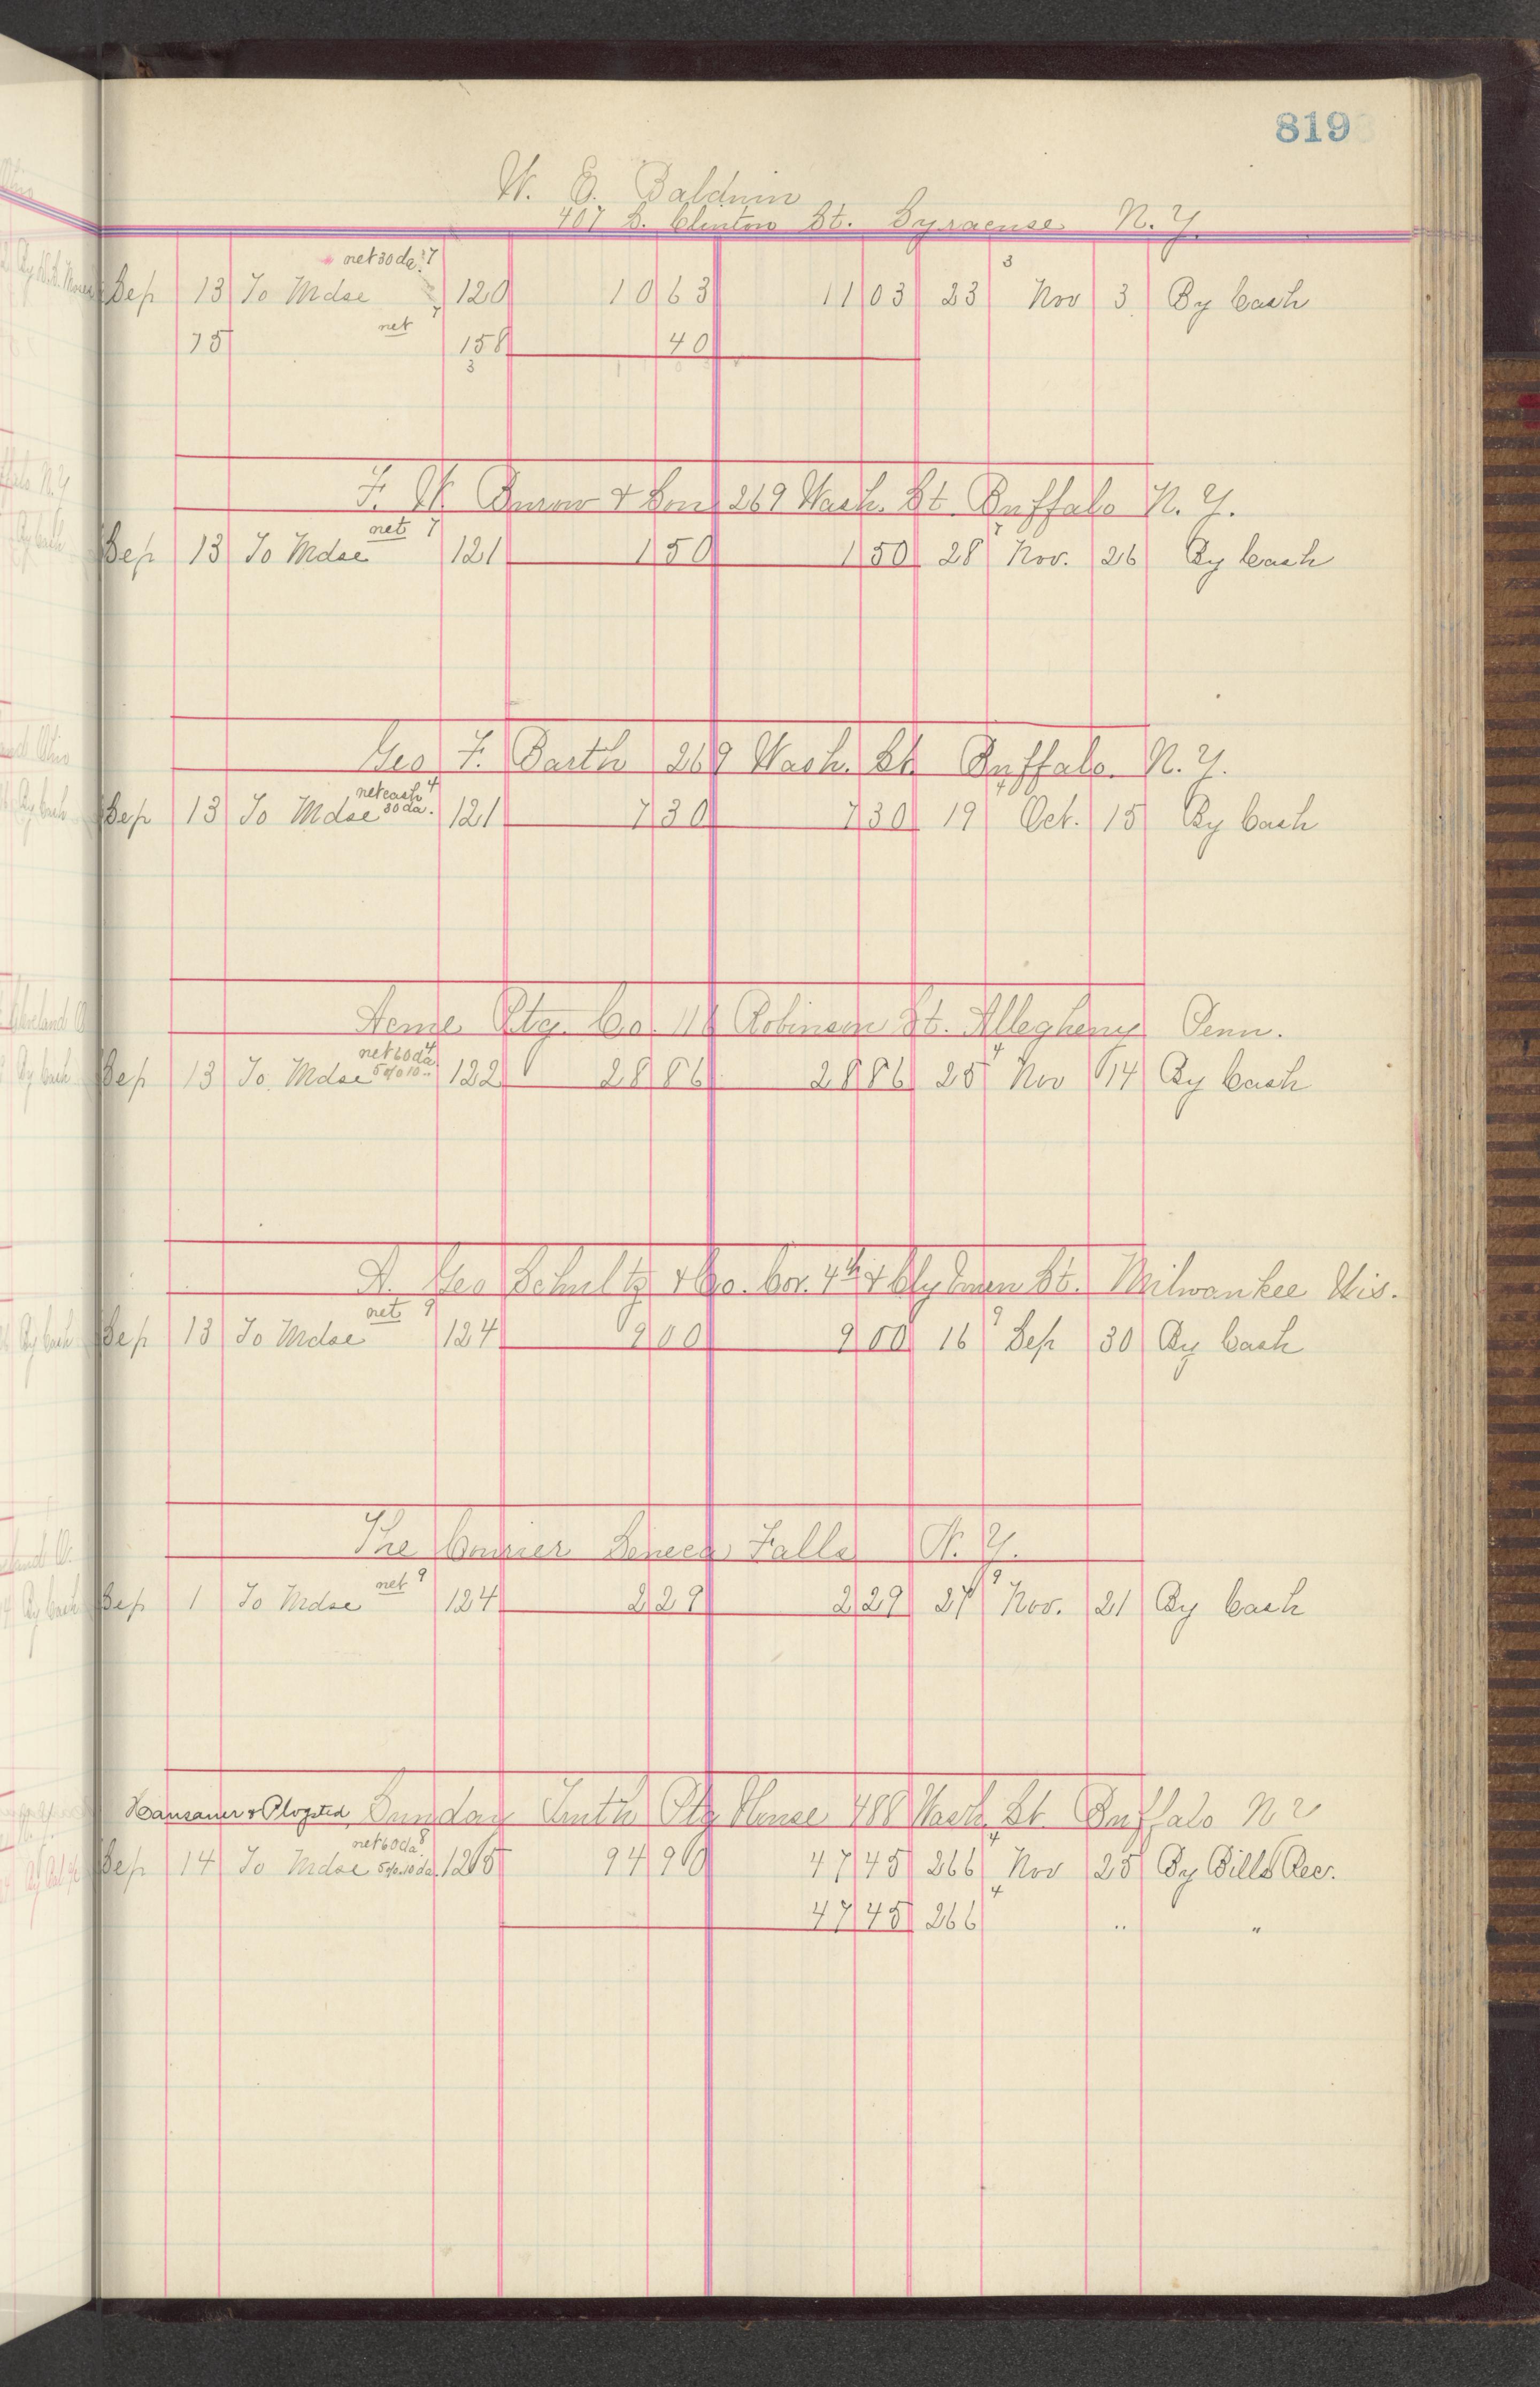 819
W. E. Baldwin
407 S. Clinton St. Syracuse N.Y.
net 30 da. 7 3
Sep 13 To Mdse 120 10 63 11 03 23 Nov 3 By Cash
net 7
15 158 40
3
F. W. & Son 269 Wash. St. Buffalo N.Y.
net 7 7
Sep 13 To Mdse 121 1 50 1 50 28 Nov. 26 By Cash
Geo F. Barth 269 Wash. St. Buffalo. N.Y.
net cash 4 4
Sep 13 To Mdse 30 da. 121 7 30 7 30 19 Oct. 15 By Cash
Acme Ptg. Co. 116 Robinson St. Allegheny Penn.
net 60 da 4 4
Sep 13 To Mdse 5 o/o 10 .. 122 28 86 28 86 25 Nov 14 By Cash
A. Geo Schultz & Co. Cor. 4th & Clybourn St. Milwaukee Wis.
net 9 9
Sep 13 To Mdse 124 9 00 9 00 16 Sep 30 By Cash
The Courier Seneca Falls N.Y.
net 9 9
Sep 1 To Mdse 124 2 29 2 29 27 Nov. 21 By Cash
Hausauer & Plogsted Sunday Truth Ptg House 488 Wash. St. Buffalo N Y
net 60 da 8 4
Sep 14 To Mdse 5 o/o 10 da. 125 94 90 47 45 266 Nov 25 By Bills Rec.
4
47 45 266 .. "